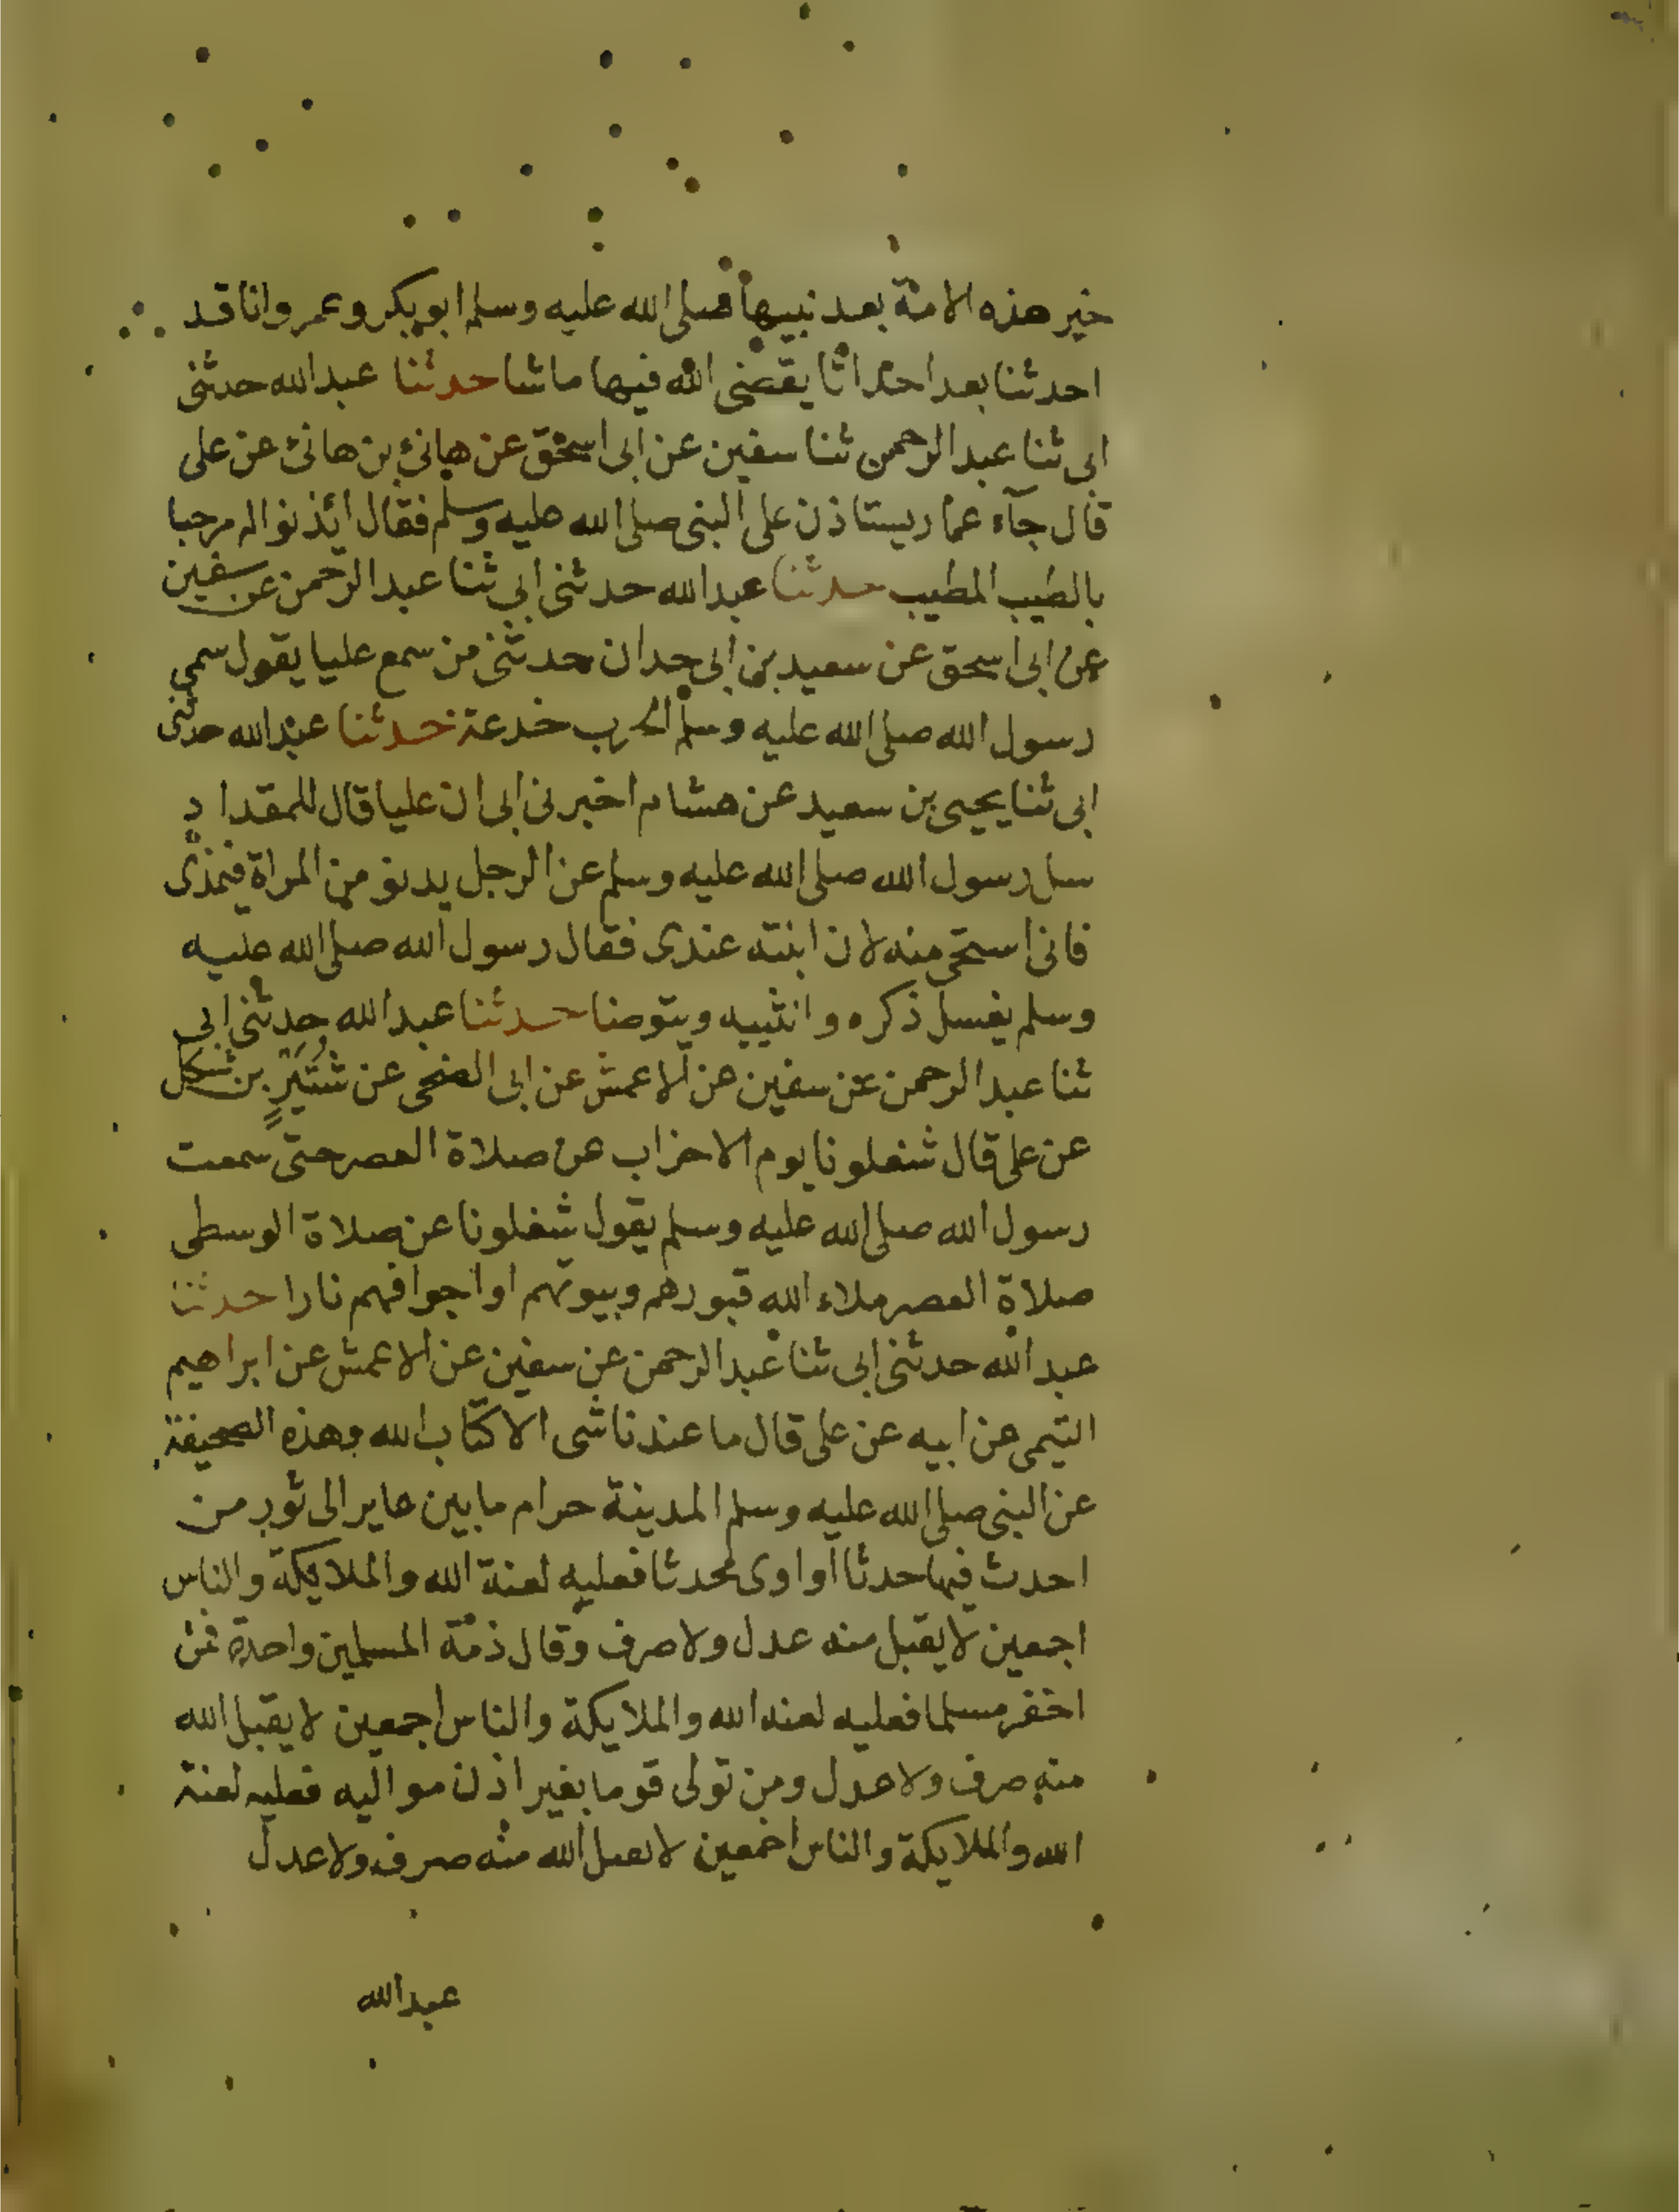 خير هذه الامة بعد نبيها صلى الله عليه وسلم ابو بكر وعمر وانا قد
احدثنا بعد احداثا يقضى الله فيها ما شا حدثنا عبد الله حدثنى
ابى ثنا عبد الرحمن ثنا سفين عن ابى اسحق عن هانئ بن هانئ عن على
قال جآء عمار يستاذن على النبى صلى الله عليه وسلم فقال ائذنوا له مرحبا
بالطيب المطيب حدثنا عبد الله حدثنى ابى ثنا عبد الرحمن عن سفين
عن ابى اسحق عن سعيد بن ابى حدان حدثنى من سمع عليا يقول سمى
رسول الله صلى الله عليه وسلم الحرب خدعة حدثنا عبد الله حدثنى
ابى ثنا يحيى بن سعيد عن هشام اخبرنى ابى ان عليا قال للمقداد
سل رسول الله صلى الله عليه وسلم عن الرجل يدنو من المراة فيمذى
فانى استحى منه لان ابنته عندى فقال رسول الله صلى الله عليه
وسلم يغسل ذكره وانثييه ويتوضا حدثنا عبد الله حدثنى ابى
ثنا عبد الرحمن عن سفين عن الاعمش عن ابى الضحى عن شُتَيْرٍ بن شكل
عن على قال شغلونا يوم الاحزاب عن صلاة العصر حتى سمعت
رسول الله صلى الله عليه وسلم يقول شغلونا عن صلاة الوسطى
صلاة العصر ملاء الله قبورهم وبيوتهم او اجوافهم نارا حدثنا
عبد الله حدثنى ابى ثنا عبد الرحمن عن سفين عن الاعمش عن ابراهيم
التيمى عن ابيه عن على قال ما عندنا شى الا كتاب الله وهذه الصحيفة
عن النبى صلى الله عليه وسلم المدينة حرام ما بين عاير الى ثور من
احدث فيها حدثا او اوى محدثا فعليه لعنة الله والملايكة والناس
اجمعين لا يقبل منه عدل ولا صرف وقال ذمة المسلمين واحدة فمن
اخفر مسلما فعليه لعنه الله والملايكة والناس اجمعين لا يقبل الله
منه صرف ولا عدل ومن تولى قوما بغير اذن مواليه فعليه لعنة
الله والملايكة والناس اجمعين لا يقبل الله منه صرف ولا عدل
عبد الله